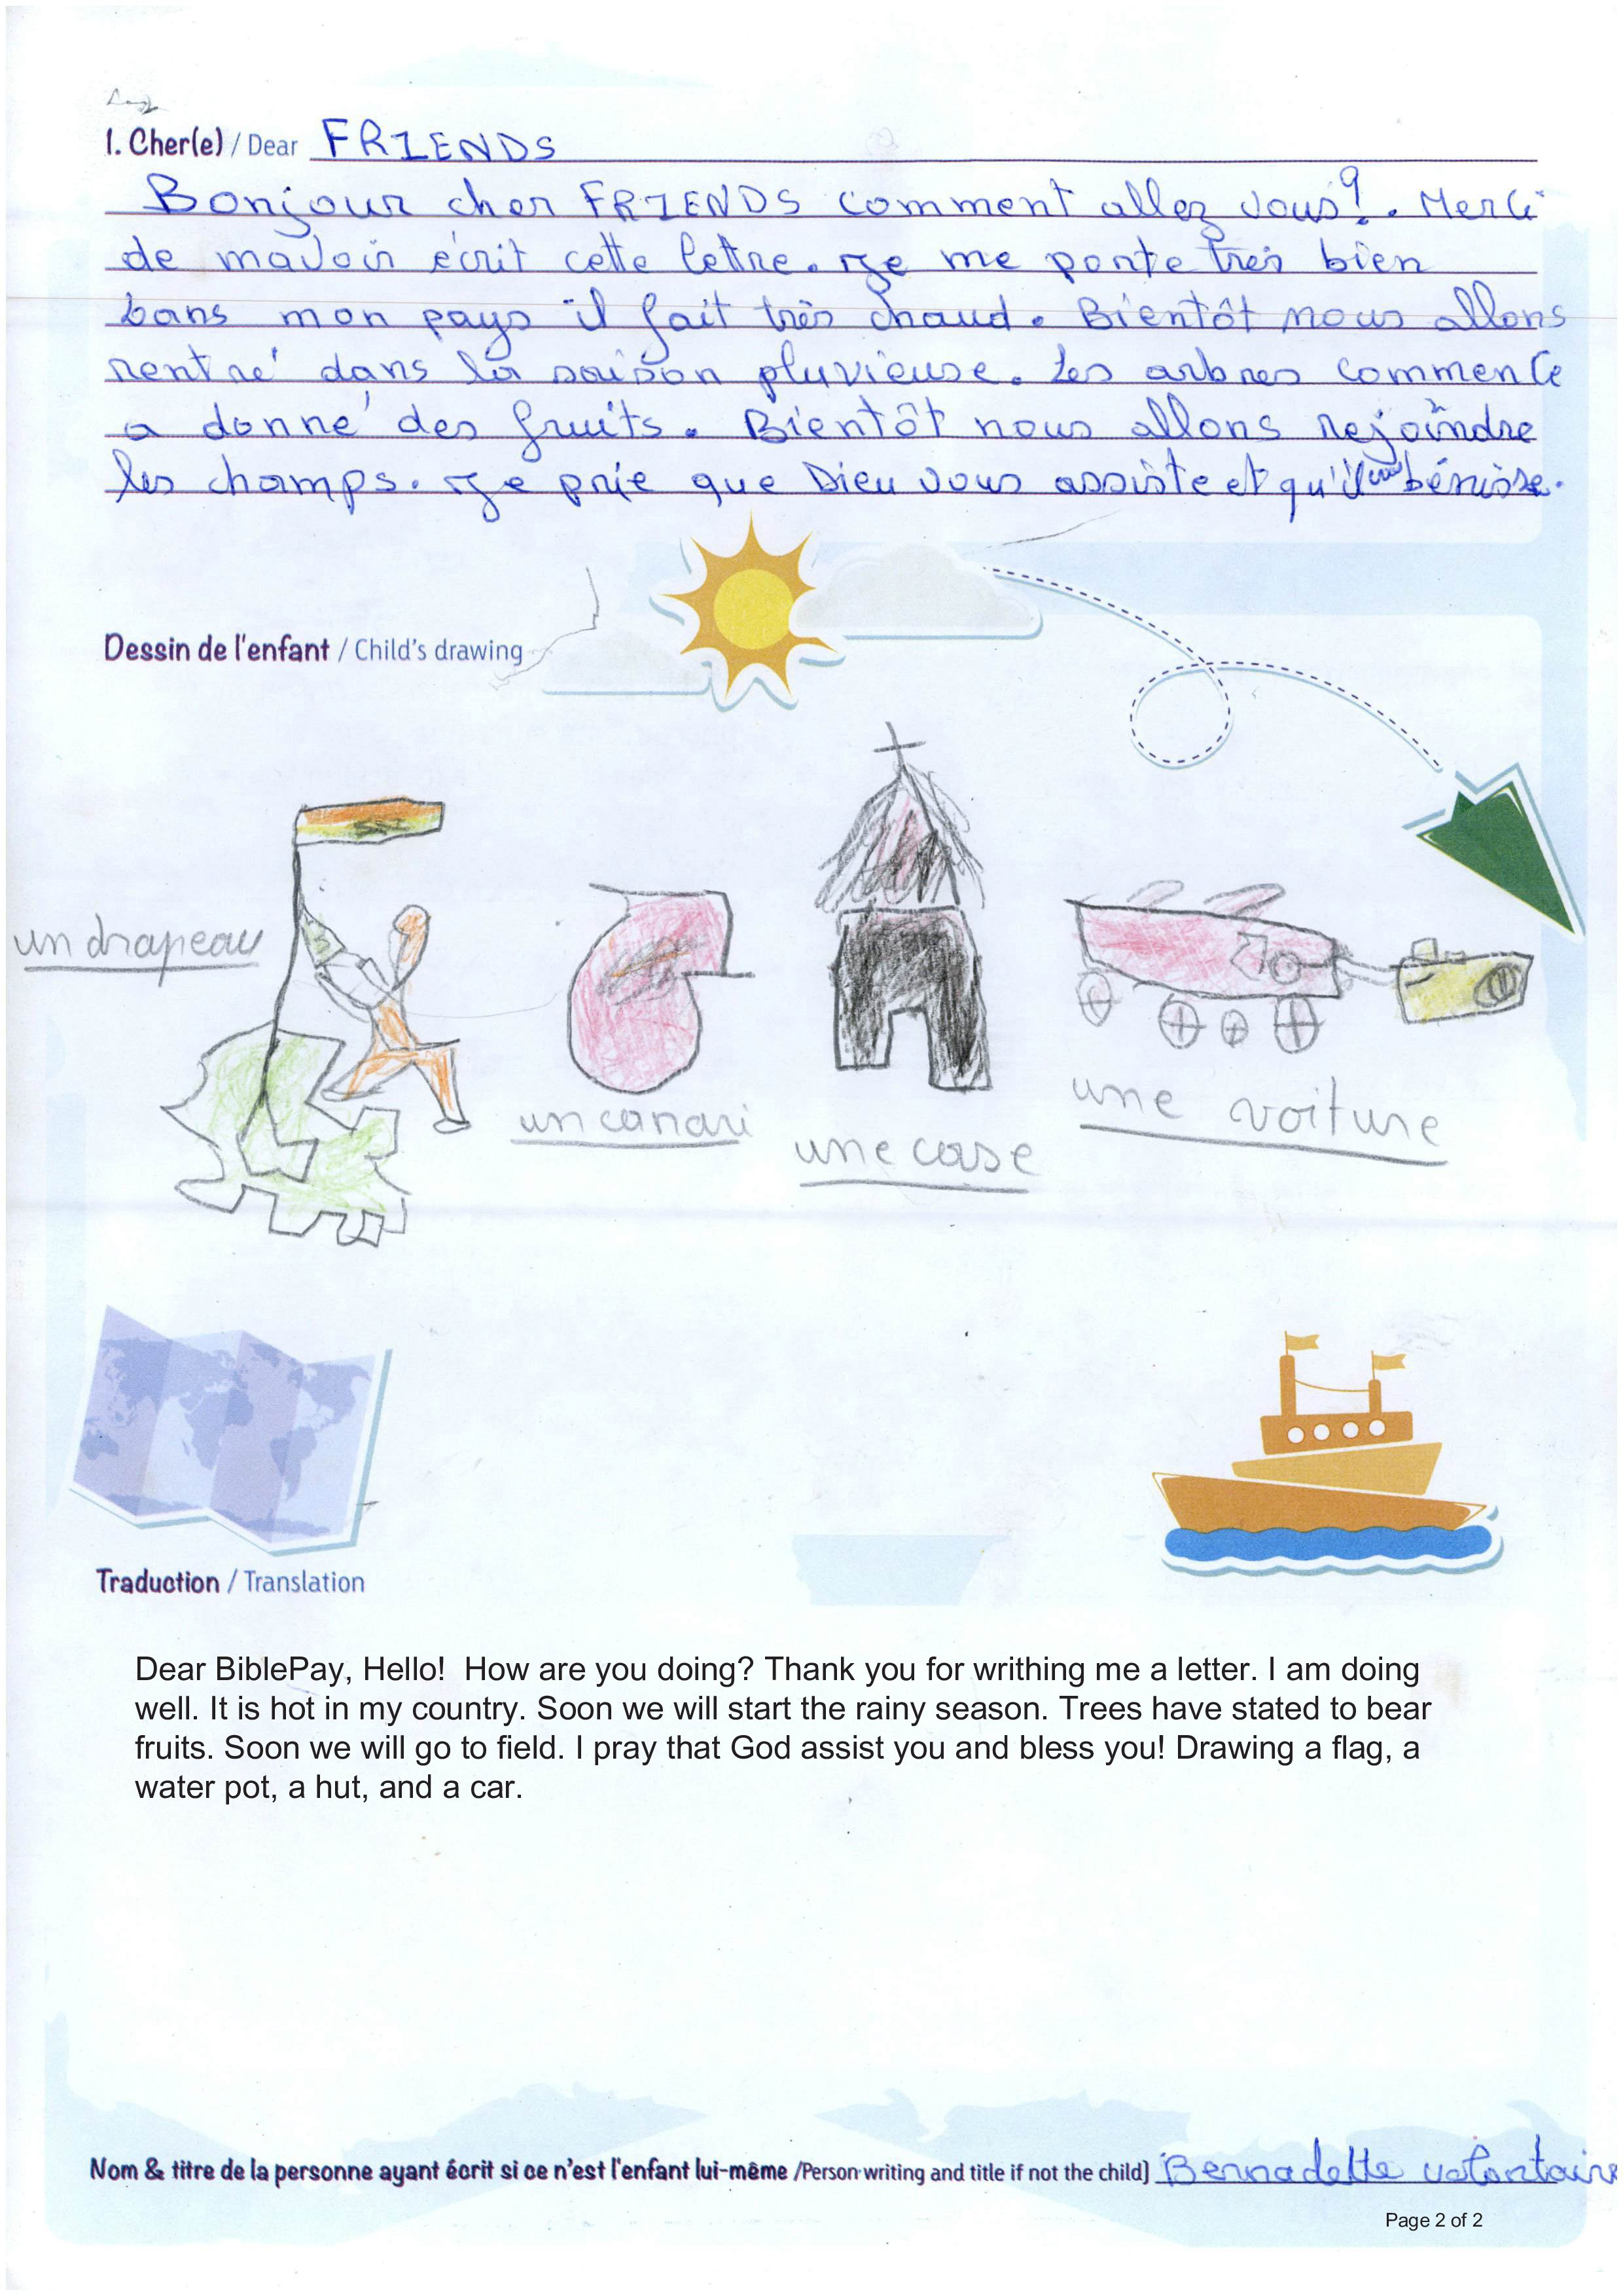 1. Cher(e) / Dear FRIENDS
Bonjour cher FRIENDS comment allez vous?. Merci
de mavoir écrit cette lettre. Je me porte très bien
bans mon pays il fait très chaud. Bientôt nous allons
rentré dans la saison pluvieuse. Les arbres commence
a donné des fruits. Bientôt nous allons rejoindre
les champs. Je prie que Dieu vous assiste et qu'il vous bénisse.
Dessin de l'enfant / Child's drawing
un drapeau
un canari
une case
une voiture
Traduction / Translation
Dear BiblePay, Hello! How are you doing? Thank you for writhing me a letter. I am doing
well. It is hot in my country. Soon we will start the rainy season. Trees have stated to bear
fruits. Soon we will go to field. I pray that God assist you and bless you! Drawing a flag, a
water pot, a hut, and a car.
Nom & titre de la personne ayant écrit si ce n'est l'enfant lui-même /Person writing and title if not the child) Bernadette volontaire
Page 2 of 2